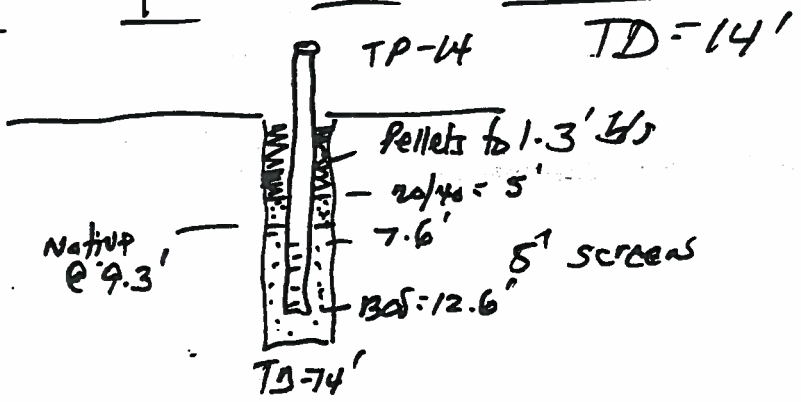 TP-14
TD=14'
Pellets to 1.3' b/s
20/40 = 5'
7.6'
5' screens
Native
@ 9.3'
BOS=12.6'
TD=14'